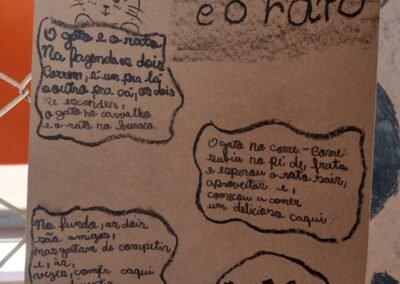 e o rato
O gato e o rato
Na fazenda os dois
Correm, é um pra lá
o outro pra cá, os dois
se esconder,
o gato no carvalho
e o rato no buraco.
O gato no corre-corre
subiu no pé de fruta
e esperou o rato sair,
aproveitar e,
começou a comer
um delicioso caqui.
No fundo, os dois
são amigos,
mas gostam de competir
e, as,
vezes, comer caqui